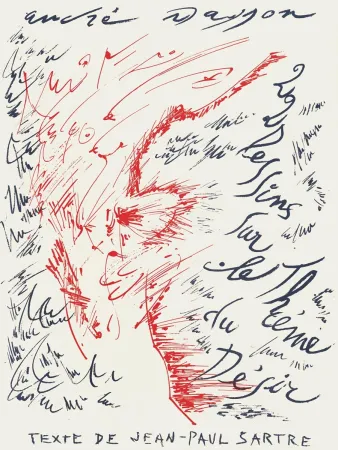 andré Masson
22 Dessins
sur
le Thème
du
Désir
TEXTE DE JEAN-PAUL SARTRE